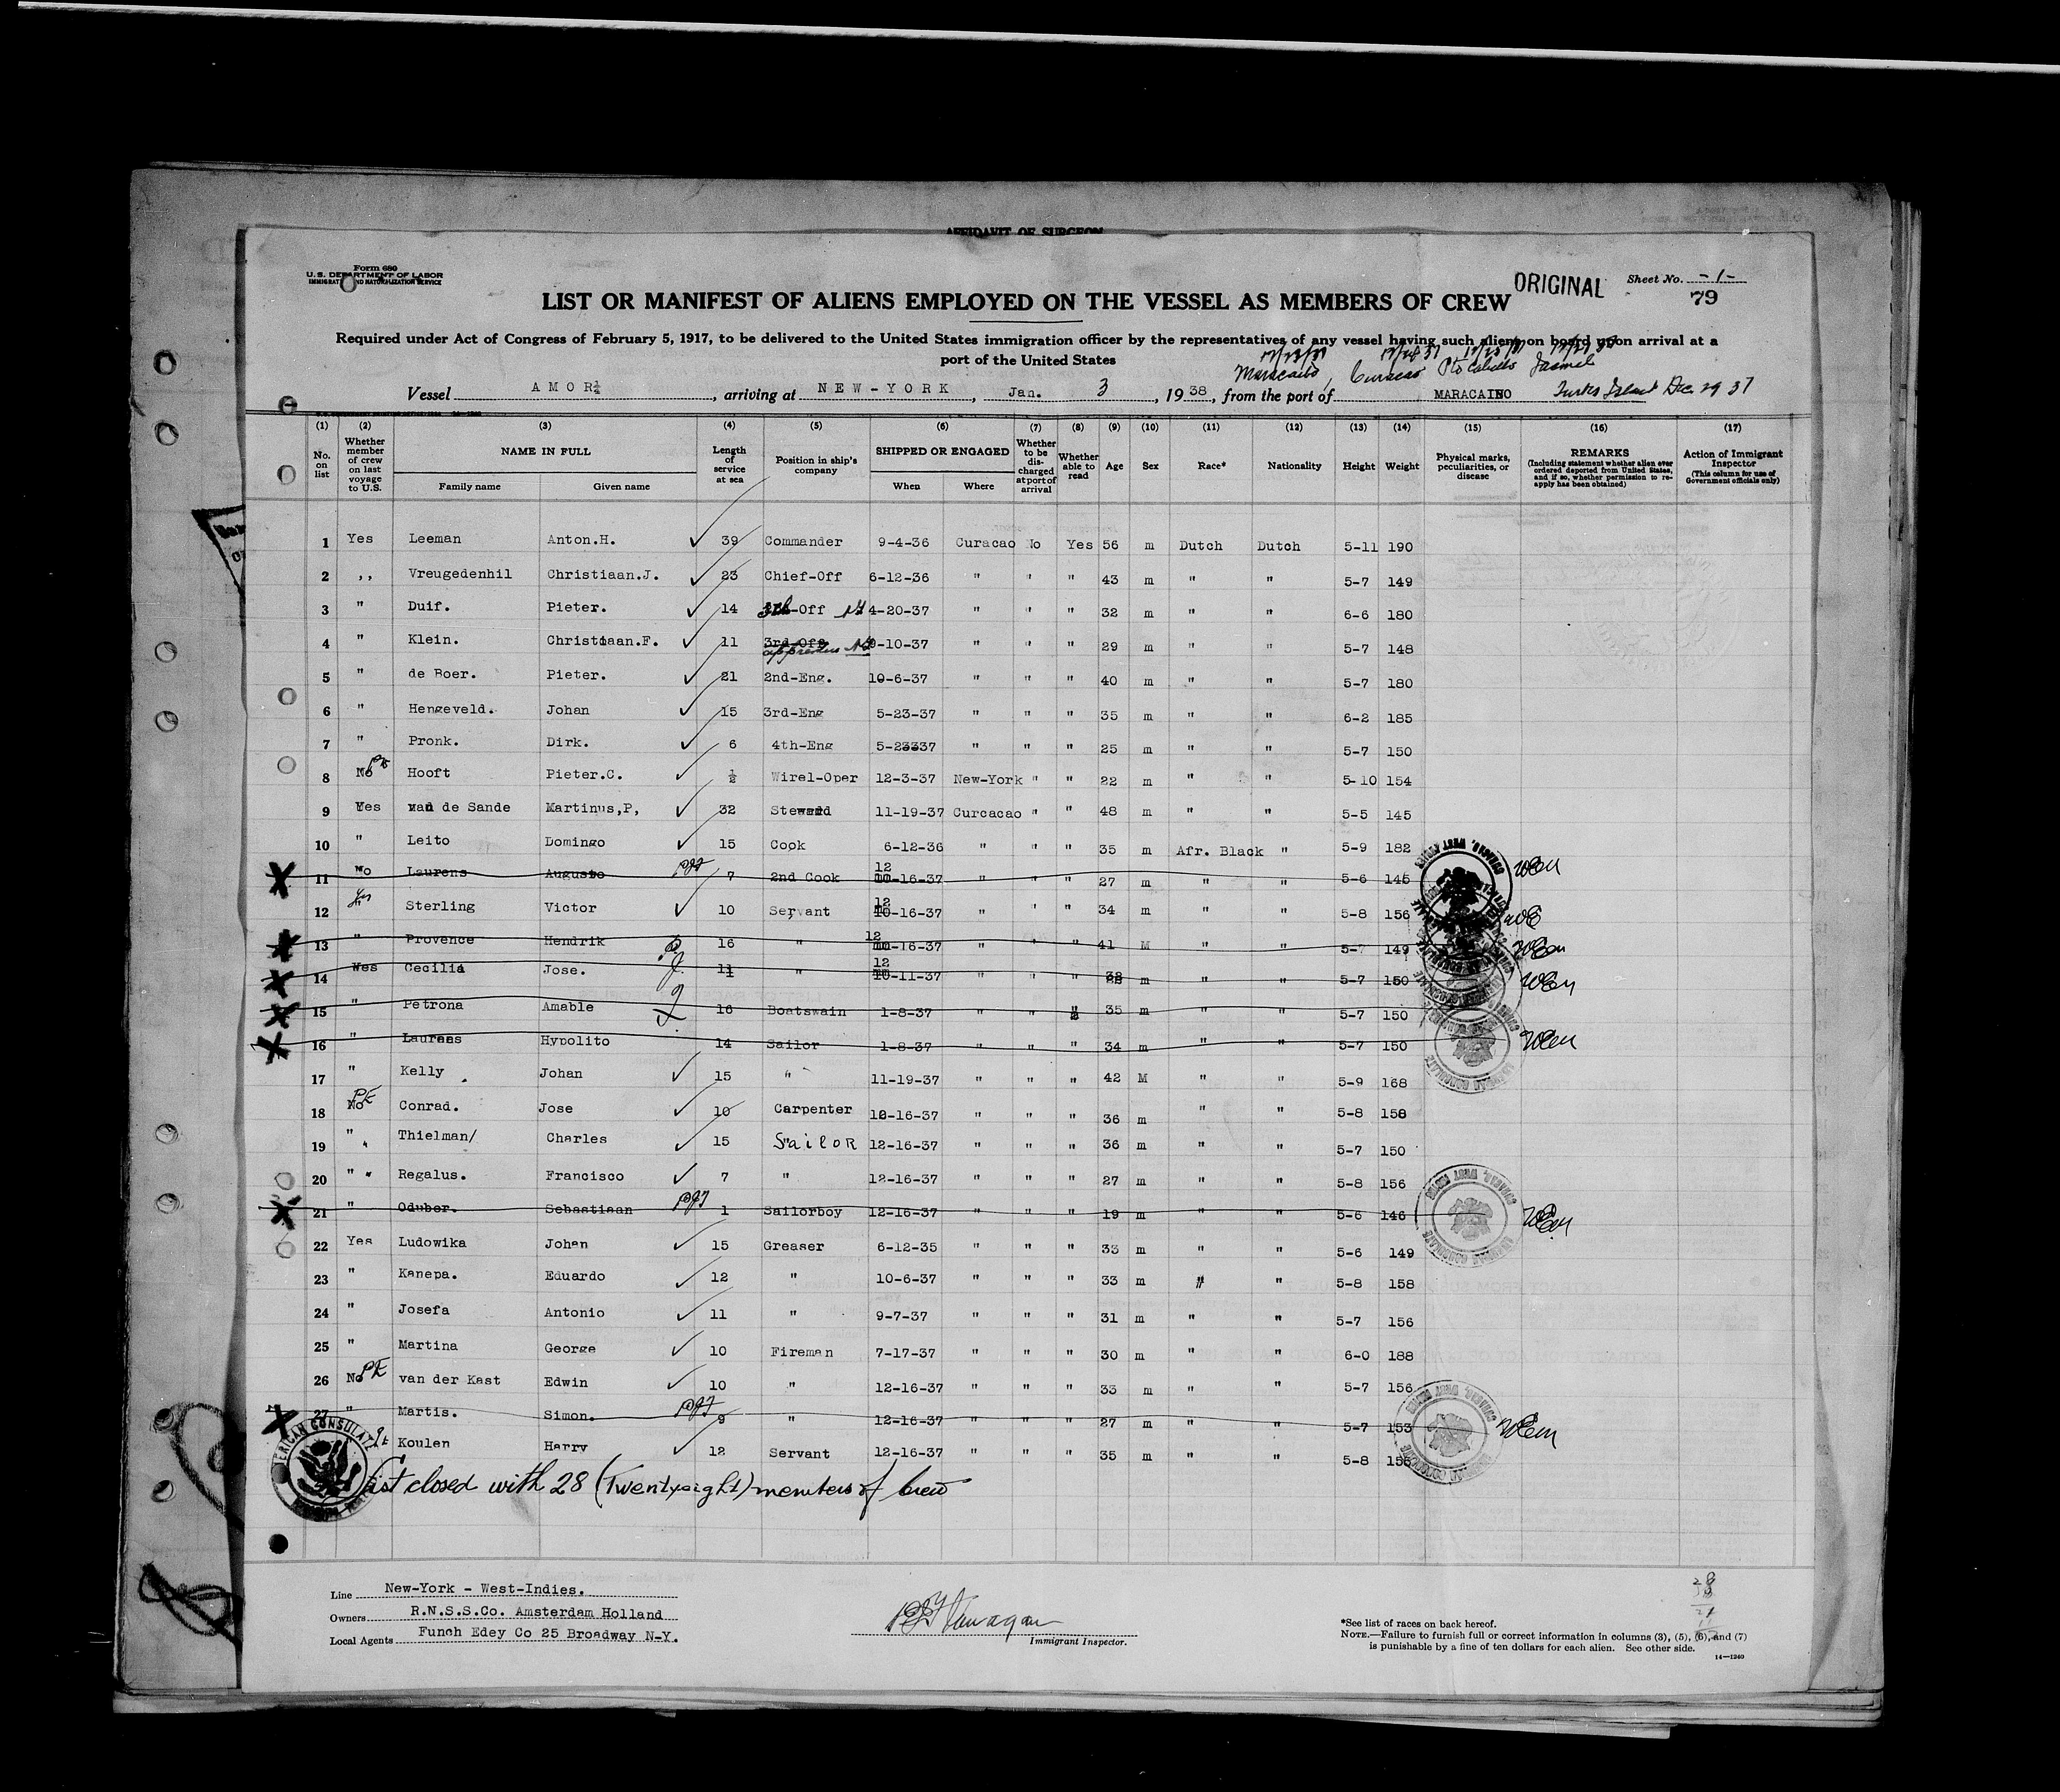 AFFIDAVIT OF SURGEON
Form 680
U.S. DEPARTMENT OF LABOR
IMMIGRATION AND NATURALIZATION SERVICE
ORIGINAL
Sheet No. -1-
79
LIST OR MANIFEST OF ALIENS EMPLOYED ON THE VESSEL AS MEMBERS OF CREW
Required under Act of Congress of February 5, 1917, to be delivered to the United States immigration officer by the representatives of any vessel having such aliens on board upon arrival at a
port of the United States
Maracaibo, Curacao Pto Cabello Jacmel
Vessel AMOR, arriving at NEW-YORK, Jan. 3, 1938, from the port of MARACAIBO Turks Island Dec. 29 37
(1) (2) (3) (4) (5) (6) (7) (8) (9) (10) (11) (12) (13) (14) (15) (16) (17)
No. on list
Whether member of crew on last voyage to U.S.
NAME IN FULL
Family name Given name
Length of service at sea
Position in ship's company
SHIPPED OR ENGAGED
When Where
Whether to be discharged at port of arrival
Whether able to read
Age Sex Race* Nationality Height Weight
Physical marks, peculiarities, or disease
REMARKS
(Including statement whether alien ever ordered deported from United States, and if so, whether permission to reapply has been obtained)
Action of Immigrant Inspector
(This column for use of Government officials only)
1 Yes Leeman Anton.H. 39 Commander 9-4-36 Curacao No Yes 56 m Dutch Dutch 5-11 190
2 ,, Vreugedenhil Christiaan.J. 23 Chief-Off 6-12-36 " " " 43 m " " 5-7 149
3 " Duif. Pieter. 14 -Off 4-20-37 " " " 32 m " " 6-6 180
4 " Klein. Christiaan.F. 11 3rd-Off -10-37 " " " 29 m " " 5-7 148
5 " de Boer. Pieter. 21 2nd-Eng. 10-6-37 " " " 40 m " " 5-7 180
6 " Hengeveld. Johan 15 3rd-Eng 5-23-37 " " " 35 m " " 6-2 185
7 " Pronk. Dirk. 6 4th-Eng 5-23337 " " " 25 m " " 5-7 150
8 No Hooft Pieter.C. ½ Wirel-Oper 12-3-37 New-York " " 22 m " " 5-10 154
9 Yes van de Sande Martinus,P, 32 Steward 11-19-37 Curcacao " " 48 m " " 5-5 145
10 " Leito Domingo 15 Cook 6-12-36 " " " 35 m Afr. Black " 5-9 182
11 No Laurens Augusto 7 2nd Cook 12-16-37 " " " 27 m " " 5-6 145
12 Yes Sterling Victor 10 Servant 12-16-37 " " " 34 m " " 5-8 156
13 " Provence Hendrik 16 " 12-16-37 " " " 41 M " " 5-7 149
14 Yes Cecilia Jose. 11 " 12-11-37 " " " 38 m " " 5-7 150
15 " Petrona Amable 16 Boatswain 1-8-37 " " " 35 m " " 5-7 150
16 " Laurens Hypolito 14 Sailor 1-8-37 " " " 34 m " " 5-7 150
17 " Kelly Johan 15 " 11-19-37 " " " 42 M " " 5-9 168
18 No Conrad. Jose 10 Carpenter 12-16-37 " " " 36 m " " 5-8 158
19 " Thielman/ Charles 15 Sailor 12-16-37 " " " 36 m " " 5-7 150
20 " Regalus. Francisco 7 " 12-16-37 " " " 27 m " " 5-8 156
21 " Oduber. Sebastiaan 1 Sailorboy 12-16-37 " " " 19 m " " 5-6 146
22 Yes Ludowika Johan 15 Greaser 6-12-35 " " " 33 m " " 5-6 149
23 " Kanepa. Eduardo 12 " 10-6-37 " " " 33 m " " 5-8 158
24 " Josefa Antonio 11 " 9-7-37 " " " 31 m " " 5-7 156
25 " Martina George 10 Fireman 7-17-37 " " " 30 m " " 6-0 188
26 No van der Kast Edwin 10 " 12-16-37 " " " 33 m " " 5-7 156
27 " Martis. Simon. 9 " 12-16-37 " " " 27 m " " 5-7 153
Koulen Harry 12 Servant 12-16-37 " " " 35 m " " 5-8
List closed with 28 (Twentyeight) members of crew
Line New-York - West-Indies.
Owners R.N.S.S.Co. Amsterdam Holland
Local Agents Funch Edey Co 25 Broadway N-Y.
Immigrant Inspector.
*See list of races on back hereof.
NOTE.—Failure to furnish full or correct information in columns (3), (5), (6), and (7)
is punishable by a fine of ten dollars for each alien. See other side.
14—1240